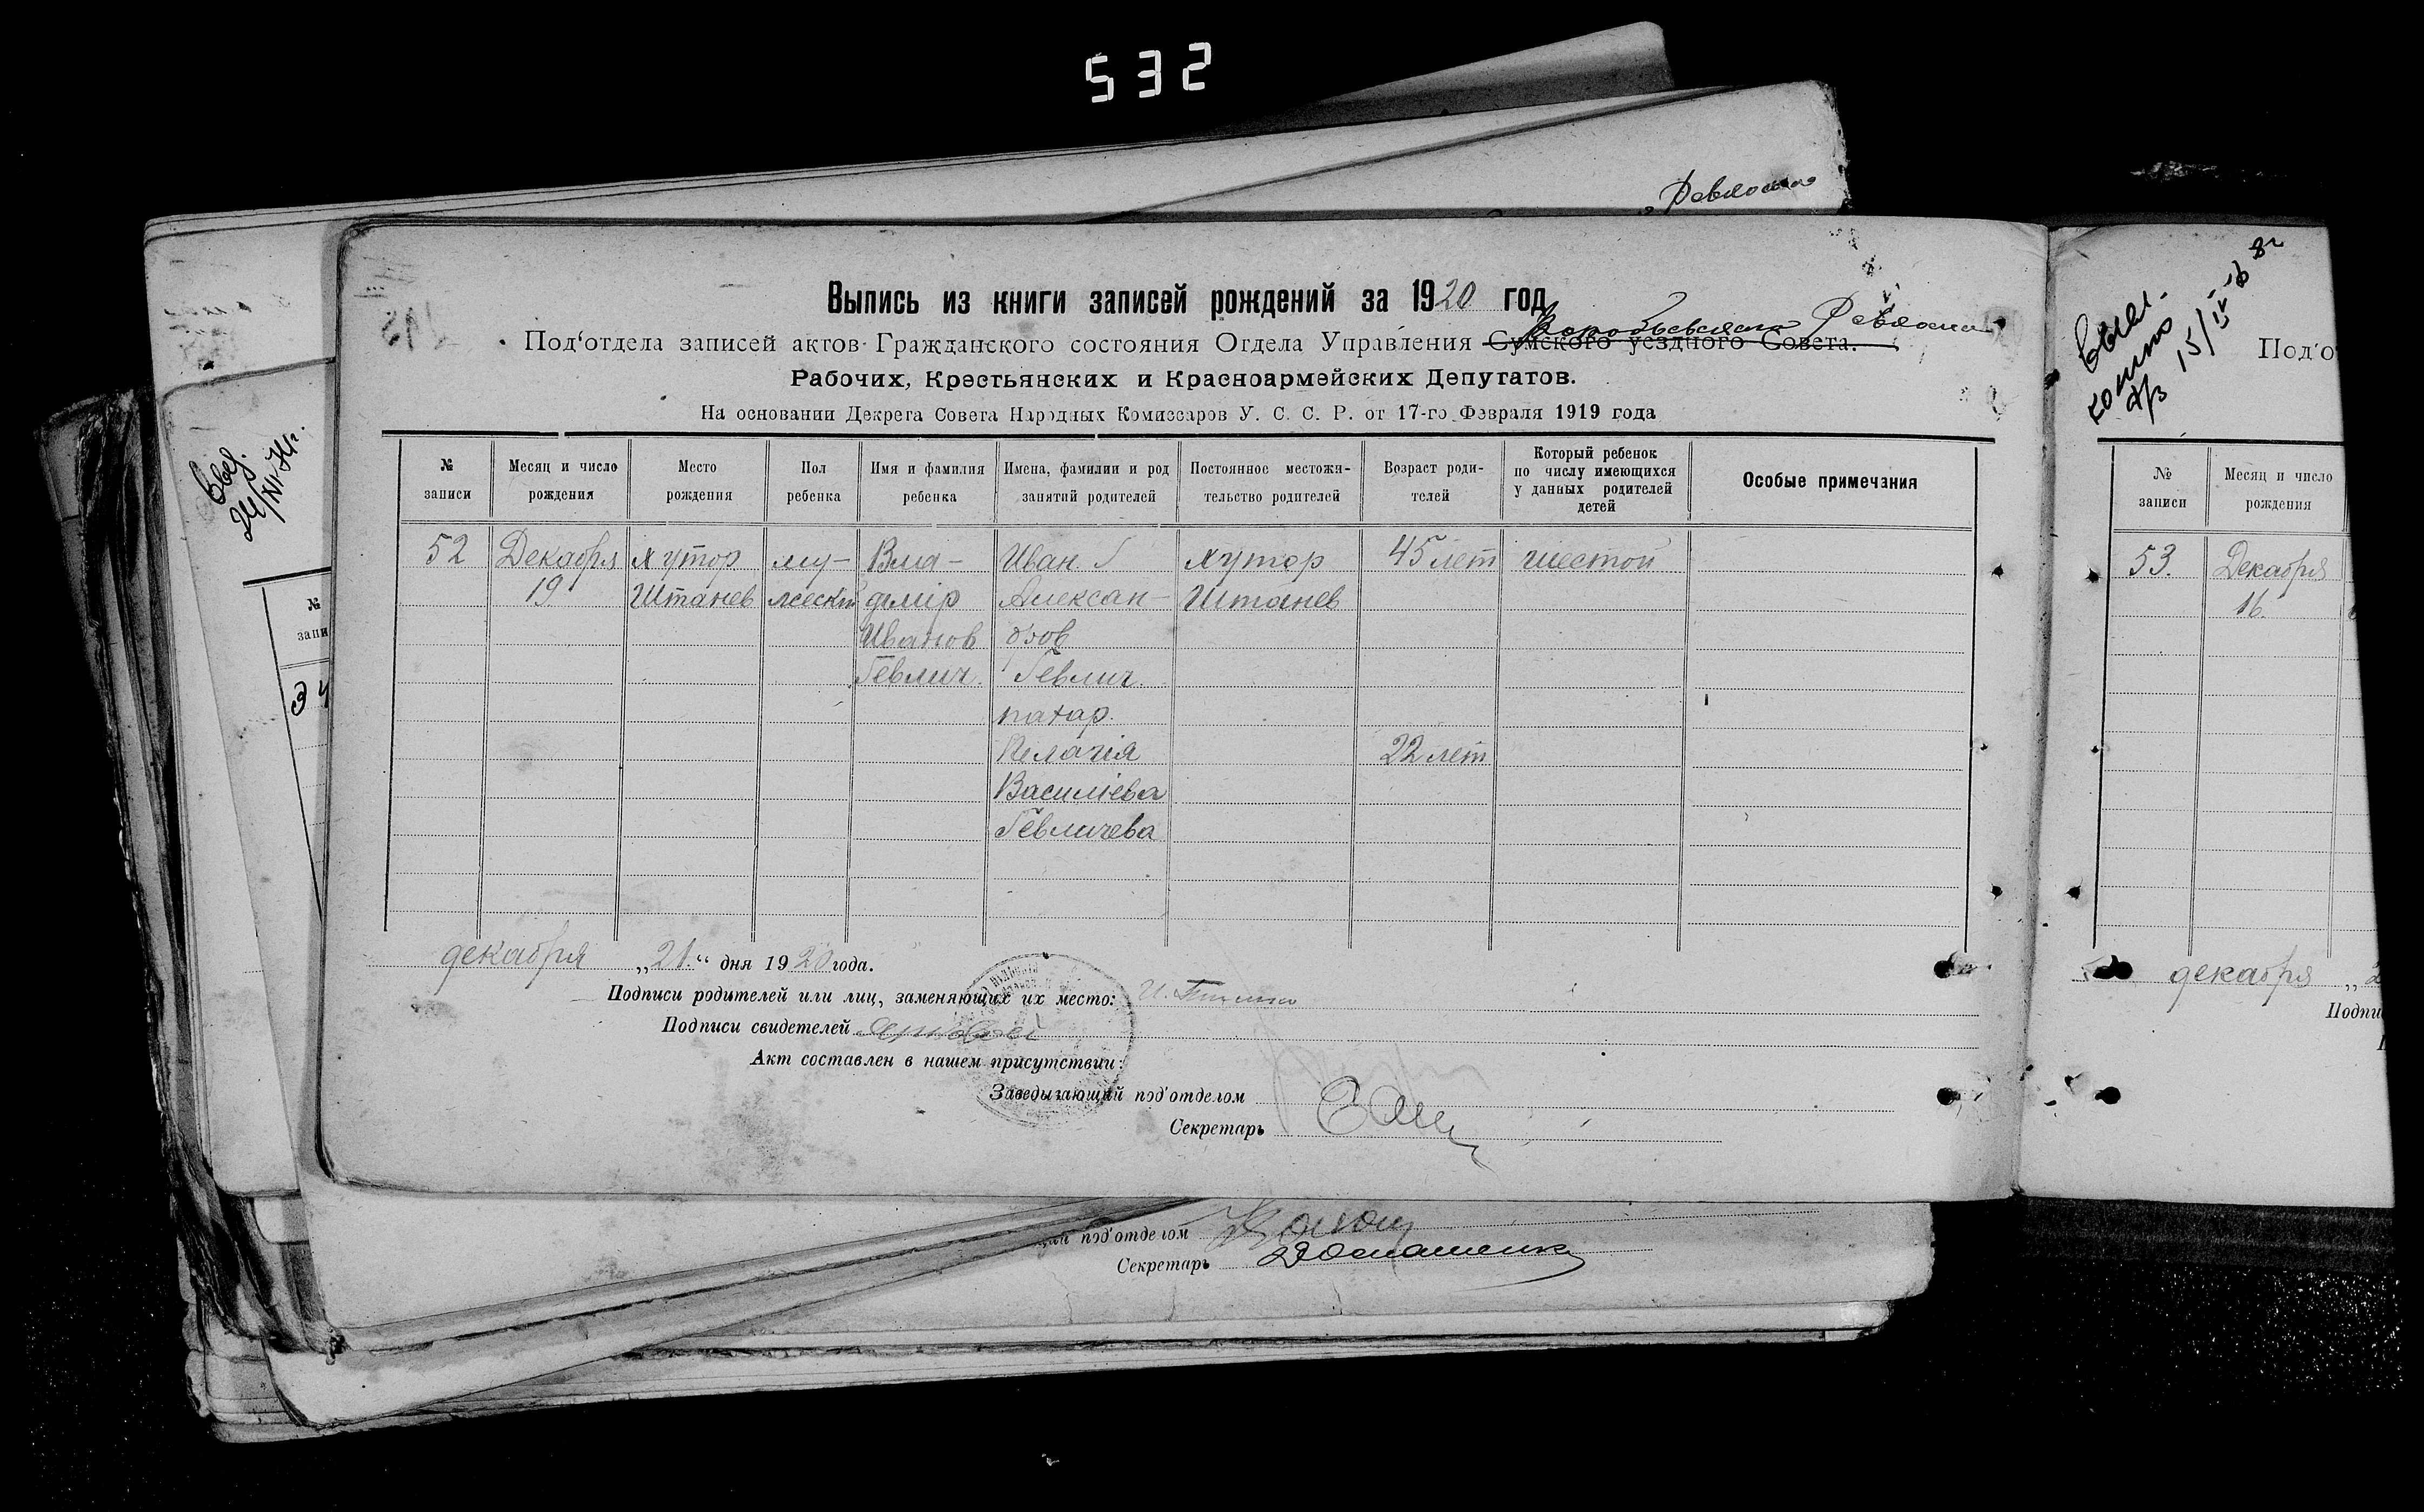 532
Ревкома
Выпись из книги записей рождений за 1920 год
Ревкома
Под'отдела записей актов Гражданского состояния Отдела Управления Сумского уездного Совета.
Рабочих, Крестьянских и Красноармейских Депутатов.
На основании Декрета Совета Народных Комиссаров У. С. С. Р. от 17-го Февраля 1919 года
№ записи
Месяц и число рождения
Место рождения
Пол ребенка
Имя и фамилия ребенка
Имена, фамилии и род занятий родителей
Постоянное местожительство родителей
Возраст родителей
Который ребенок по числу имеющихся у данных родителей детей
Особые примечания
52 Декабря хутор му- Вла- Иван хутор 45 лет шестой
19 Штанев жески димір Алексан- Штанев
Иванов дров
Гевлич. Гевлич.
пахар.
Пелагія 22 лет
Василіева
Гевличева
декабря „21.“ дня 1920 года.
Подписи родителей или лиц, заменяющих их место:
Подписи свидетелей
Акт составлен в нашем присутствии:
Заведывающий под'отделом
Секретарь
под'отделом
Секретарь
№
запи
Под'о
15/IV
№ записи
Месяц и число рождения
53. Декабря
16.
декабря „2
Подпи